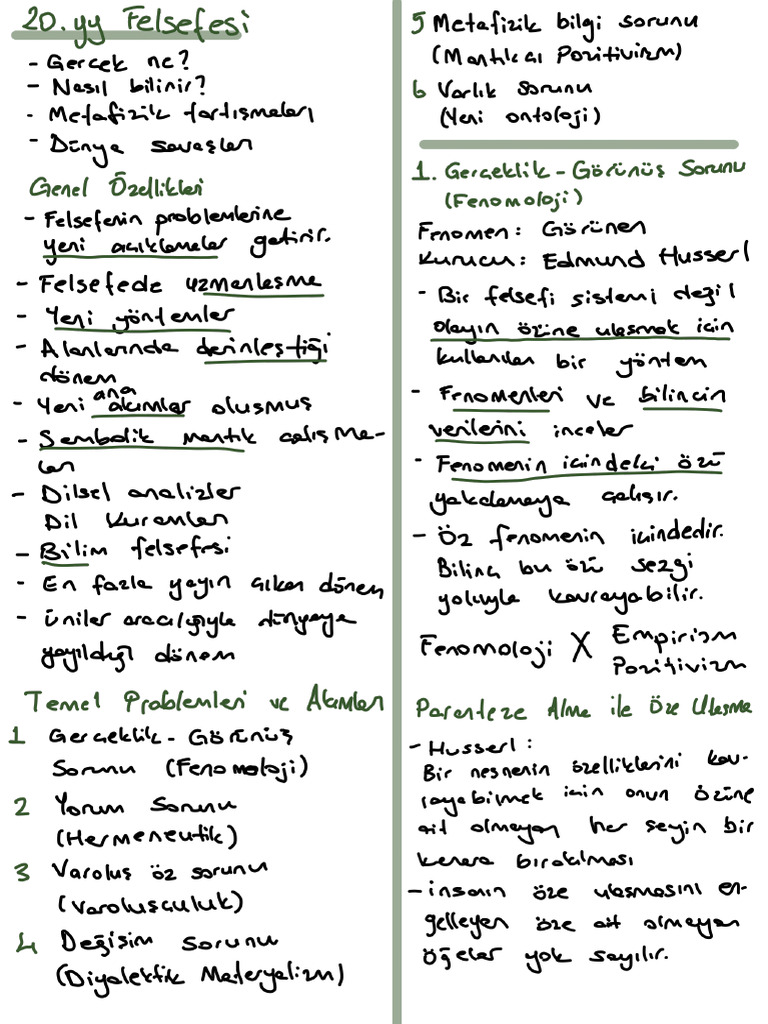 20.yy Felsefesi
- Gerçek ne?
- Nasıl bilinir?
- Metafizik tartışmaları
- Dünya savaşları
Genel Özellikleri
- Felsefenin problemlerine
yeni açıklamalar getirir.
- Felsefede uzmanlaşma
- Yeni yöntemler
- Alanlarında derinleştiği
dönem
- Yeni ana akımlar oluşmuş
- Sembolik mantık çalışma-
ları
- Dilsel analizler
Dil Kuramları
- Bilim felsefesi
- En fazla yayın çıkan dönem
- üniler aracılığıyla dünyaya
yayıldığı dönem
Temel Problemleri ve Akımları
1 Gerçeklik - Görünüş
Sorunu (Fenomoloji)
2 Yorum Sorunu
(Hermeneutik)
3 Varoluş öz sorunu
(varoluşçuluk)
4 Değişim sorunu
(Diyalektik Materyalizm)
5 Metafizik bilgi sorunu
(Mantıkçı Pozitivizm)
6 Varlık sorunu
(Yeni ontoloji)
1. Gerçeklik - Görünüş Sorunu
(Fenomoloji)
Fenomen: Görünen
Kurucu: Edmund Husserl
- Bir felsefi sistemi değil
olayın özüne ulaşmak için
kullanılan bir yöntem
- Fenomenleri ve bilincin
verilerini inceler
- Fenomenin içindeki özü
yakalamaya çalışır.
- Öz fenomenin içindedir.
Bilinç bu özü sezgi
yoluyla kavrayabilir.
Fenomoloji X Empirizm
Pozitivizm
Paranteze Alma ile Öze Ulaşma
- Husserl:
Bir nesnenin özelliklerini kav-
rayabilmek için onun özüne
ait olmayan her şeyin bir
kenara bırakılması
- insanın öze ulaşmasını en-
gelleyen öze ait olmayan
öğeler yok sayılır.